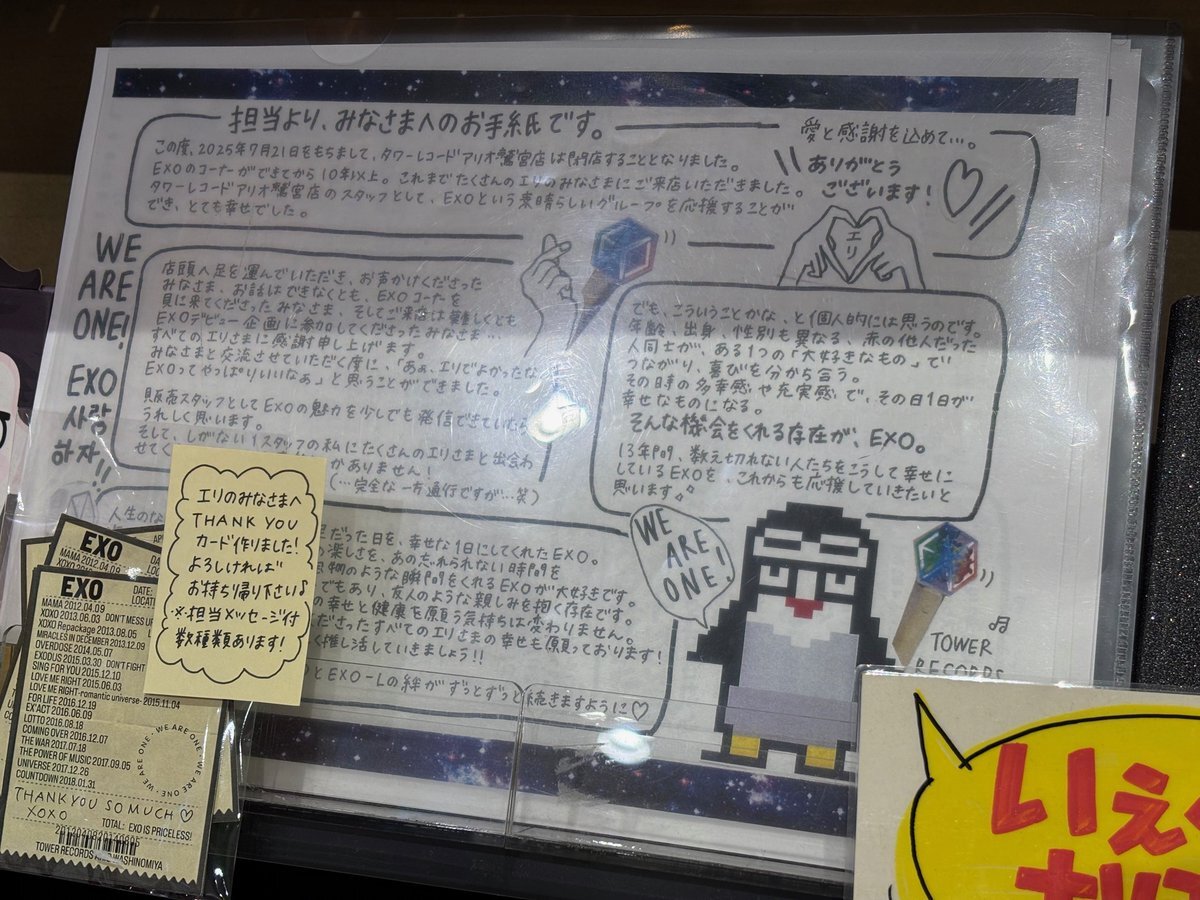 担当より、みなさまへのお手紙です。
この度、2025年7月21日をもちまして、タワーレコードアリオ鷲宮店は閉店することとなりました。
EXOのコーナーができてから10年以上。これまでたくさんのエリのみなさまにご来店いただきました。
タワーレコードアリオ鷲宮店のスタッフとして、EXOという素晴らしいグループを応援することが
でき、とても幸せでした。
愛と感謝を込めて…。
ありがとう
ございます!
エリ
WE
ARE
ONE!
EXO
사랑
하자!!
店頭へ足を運んでいただき、お声がけくださった
みなさま、お話はできなくとも、EXOコーナーを
見に来てくださったみなさま、そしてご来店は難しくとも
EXOデビュー企画に参加してくださったみなさま…
すべてのエリさまに感謝申し上げます。
みなさまと交流させていただく度に、「あぁ、エリでよかったな、
EXOってやっぱりいいなぁ」と思うことができました。
販売スタッフとしてEXOの魅力を少しでも発信できていたら
うれしく思います。
そして、しがない1スタッフの私にたくさんのエリさまと出会わ
せてく
がありません!
(…完全な一方通行ですが…笑)
でも、こういうことかな、と個人的には思うのです。
年齢、出身、性別も異なる、赤の他人だった
人同士が、ある1つの「大好きなもの」で
つながり、喜びを分から合う。
その時の多幸感や充実感で、その日1日が
幸せなものになる。
そんな機会をくれる存在が、EXO。
13年間、数え切れない人たちをこうして幸せに
しているEXOを、これからも応援していきたいと
思います。
人生のな
だった日を、幸せな1日にしてくれたEXO。
楽しさを、あの忘れられない時間を
物のような瞬間をくれるEXOが大好きです。
でもあり、友人のような親しみを抱く存在です。
の幸せと健康を願う気持ちは変わりません。
ださったすべてのエリさまの幸せも願っております!
く推し活していきましょう!!
とEXO-Lの絆がずっとずっと続きますように♡
WE
ARE
ONE!
TOWER
RECORDS
エリのみなさまへ
THANK YOU
カード作りました!
よろしければ
お持ち帰り下さい♪
※担当メッセージ付
数種類あります!
EXO
MAMA 2012.04.09
EXO
DATE:
LOCATI
MAMA 2012.04.09
XOXO 2013.06.03 DON'T MESS UP
XOXO Repackage 2013.08.05
MIRACLES IN DECEMBER 2013.12.09
OVERDOSE 2014.05.07
EXODUS 2015.03.30 DON'T FIGHT
SING FOR YOU 2015.12.10
LOVE ME RIGHT 2015.06.03
LOVE ME RIGHT-romantic universe- 2015.11.04
FOR LIFE 2016.12.19
EX'ACT 2016.06.09
LOTTO 2016.08.18
COMING OVER 2016.12.07
THE WAR 2017.07.18
THE POWER OF MUSIC 2017.09.05
UNIVERSE 2017.12.26
COUNTDOWN 2018.01.31
WE ARE ONE · WE ARE ONE · WE ARE ONE
THANK YOU SO MUCH ♡
XOXO
TOTAL: EXO IS PRICELESS!
TOWER RECORDS WASHINOMIYA
いえ